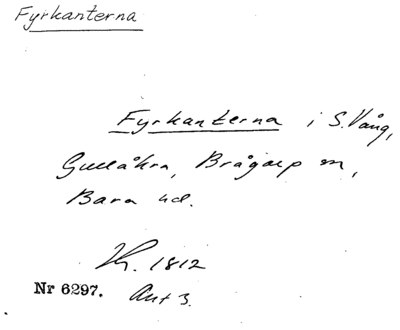 Fyrkanterna
Fyrkanterna i S. Vång,
Gullåkra, Brågarp sn,
Bara hd.
Kh. 1812
Nr 6297. Akt 3.